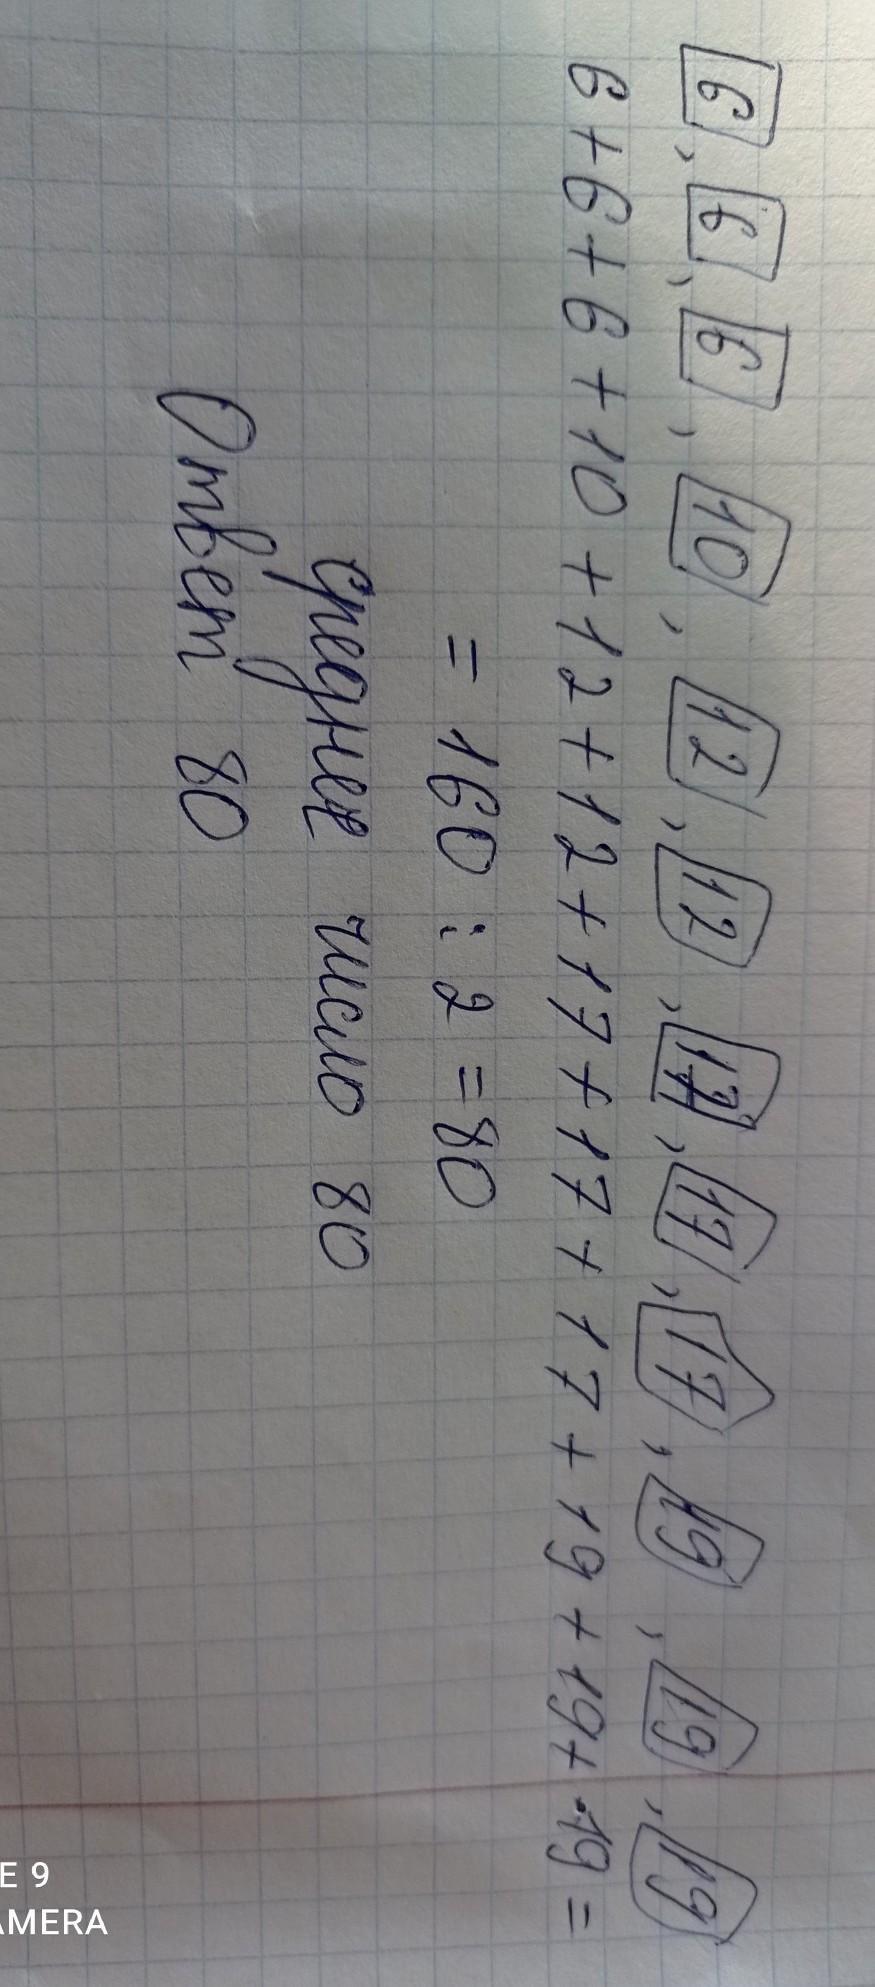 6, 6, 6, 10, 12, 12, 17, 17, 17, 19, 19, 19
6+6+6+10+12+12+17+17+17+19+19+19=
=160:2=80
среднее число 80
Ответ 80
E 9
AMERA